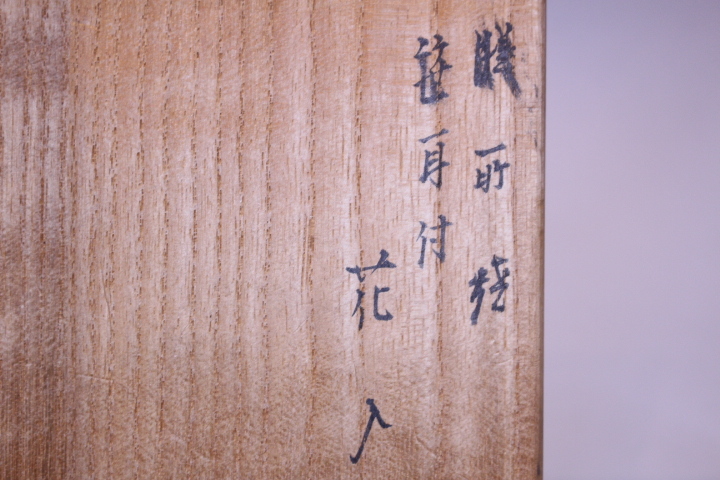 膳所焼
耳付
花入